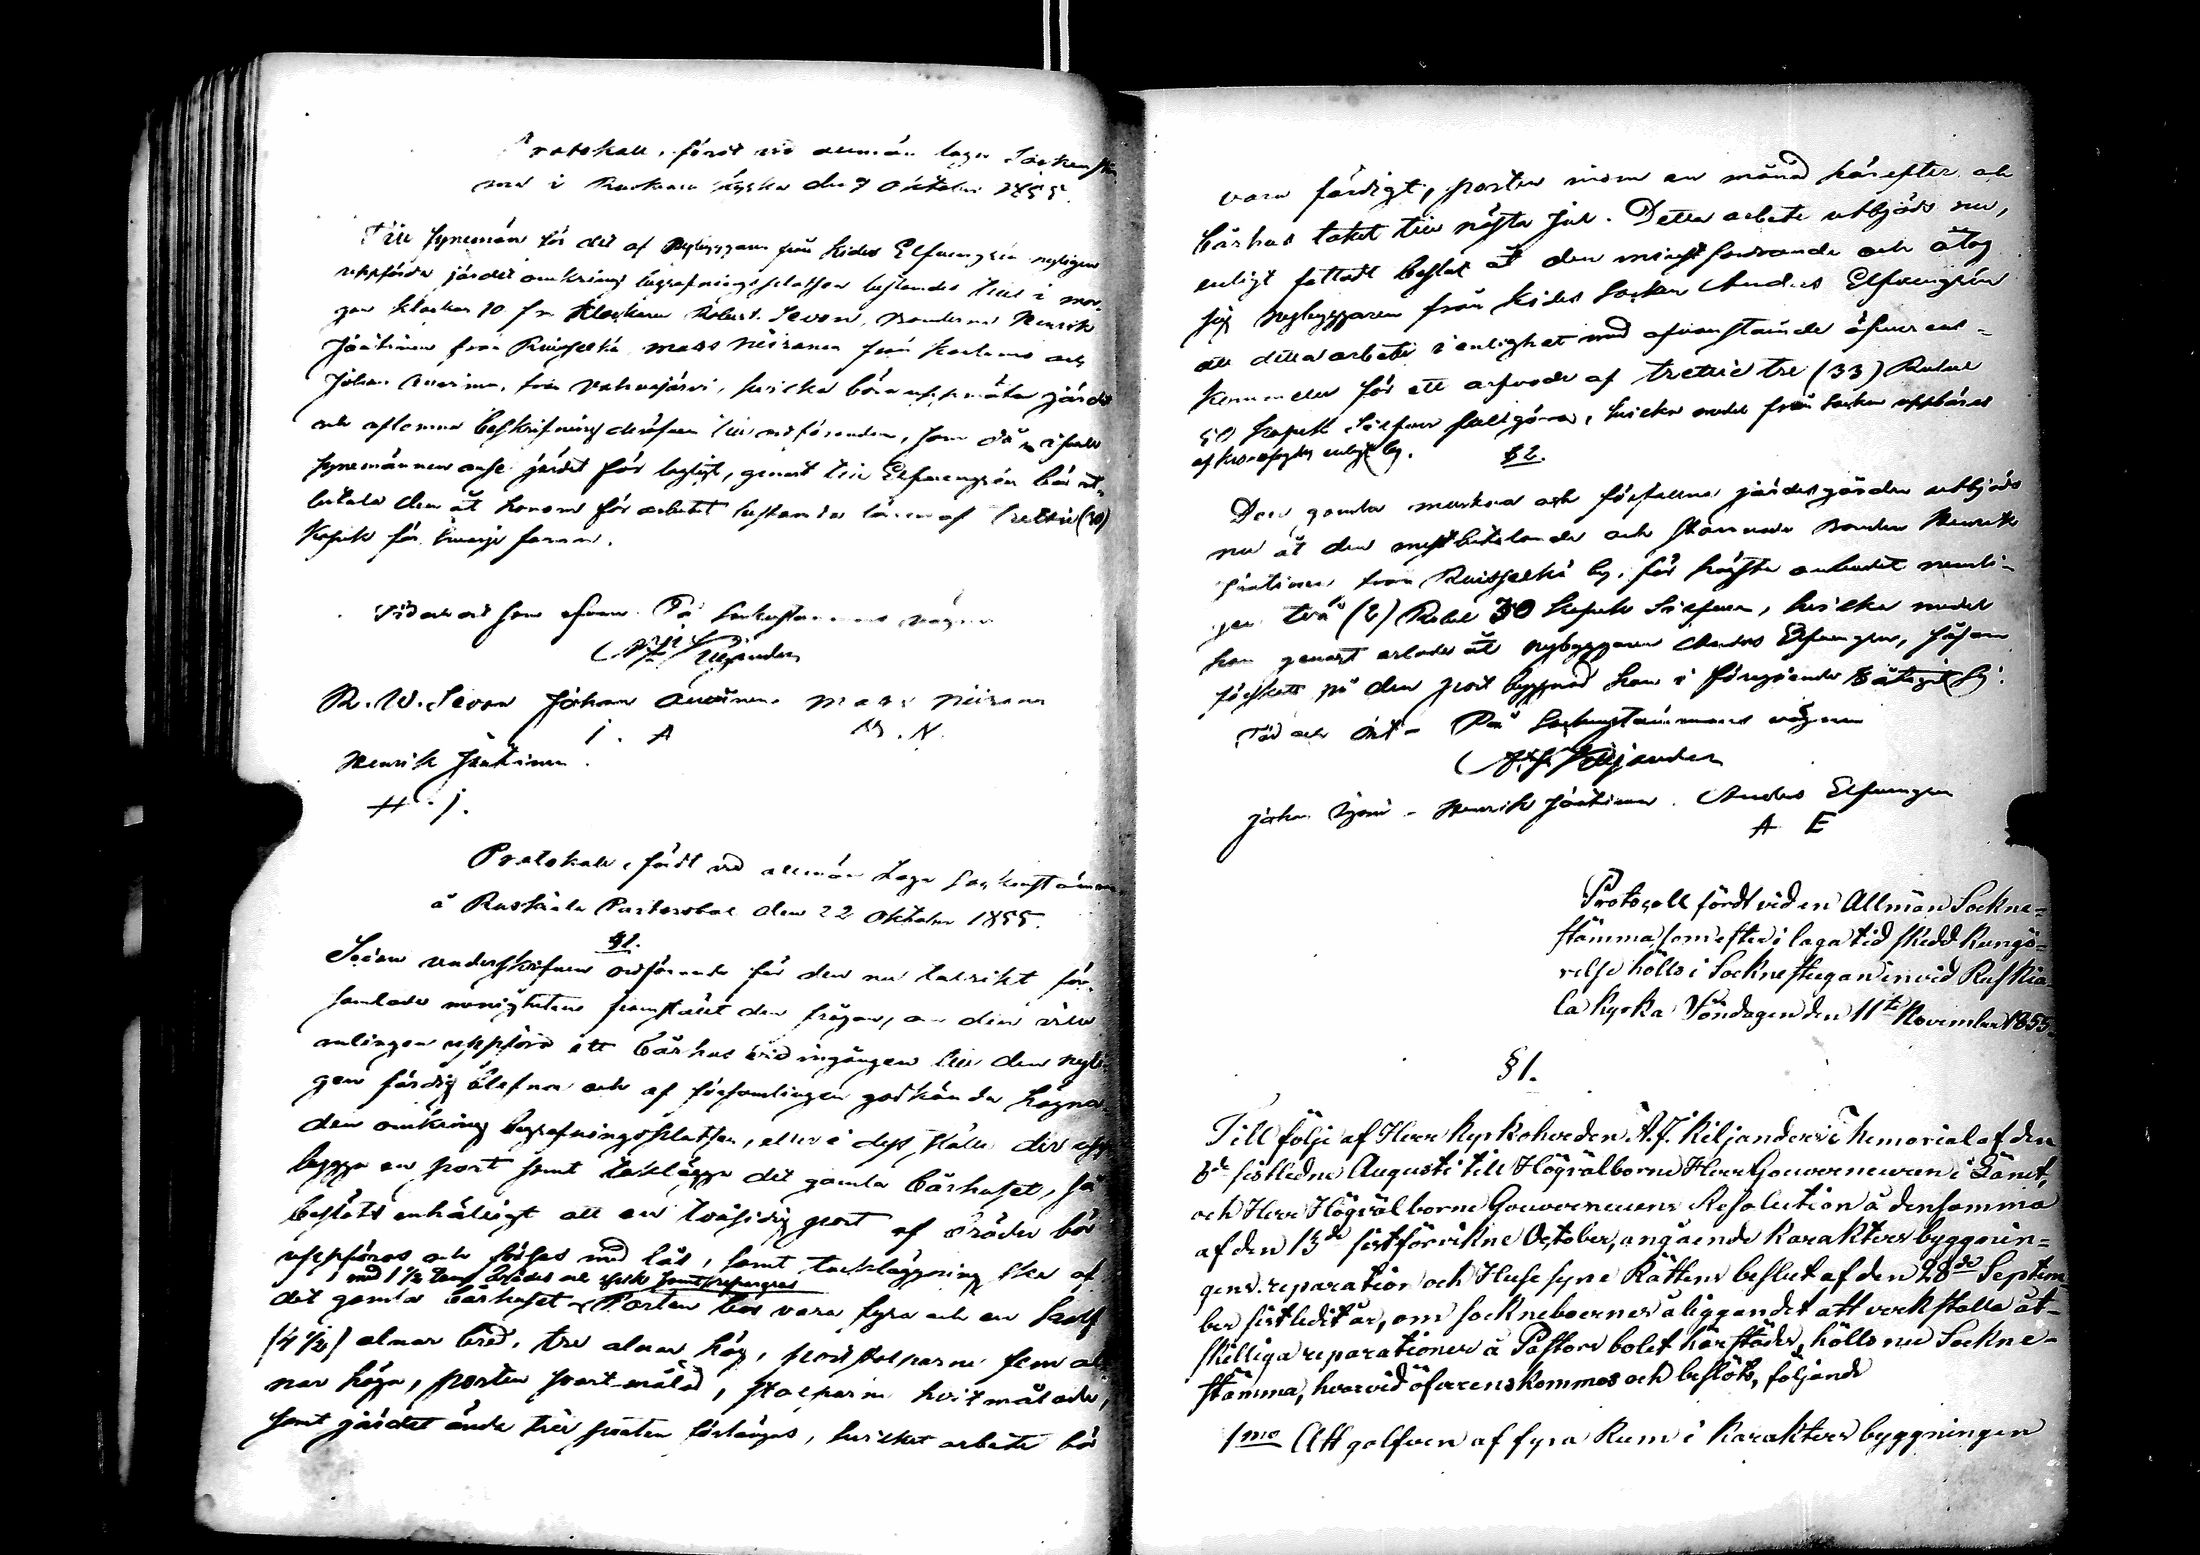 Protokoll, fördt vid allmän laga Sockenstäm
ma i Ruskiala kyrka den 7 Oktober 1855.
Till synemän för det af Nybyggaren från Kides Elfvengrén nyligen
uppförda järdet omkring begrafningsplatsen bestämdes till i mor-
gon klockan 10 f.m. Klockaren Robert Sevon, bonderne Henrik
Jäätinen från Ruisselkä, Mats Neironen från Kontumo och
Johan Auvinen från Vahvajärvi, hvilka böra uppmäta järdet
och aflemna beskrifning deröfver till ordföranden, som då ifall
synemännen anse järdet för lagligt, genast till Elfvengrén bör ut-
betala den åt honom för arbetet bestämda lönen af trettio (30)
Kopek för hvarje famn.
Tid och ort som ofvan. På Sockenstämmans vägnar
A. F. Kiljander
R. W. Sevon Johan Auvinen Mats Neironen
I. A M. N.
Henrik Jäätinen.
H. J.
Protokoll, fördt vid allmän laga Sockenstämma
å Ruskiala Pastorsbol den 22 Oktober 1855.
§1.
Sedan undertecknad ordförande för den nu talrikt för-
samlade menigheten framstält den frågan, om den ville
anlingen uppföra ett bårhus vid ingången till den nyli-
gen färdig blefna och af församlingen godkända hägna-
den omkring begrafningsplatsen, eller i dess ställe der upp-
bygga en port samt taklägga det gamla bårhuset, så
beslöts enhälligt att en tvåsidig port af bräder bör
uppföras och förses med lås, samt takläggning ske af
med 1 1/2 tums bräder och spik samt repareras
det gamla bårhuset. Porten bör vara fyra och en half
(4 1/2) alnar bred, tre alnar hög, portstolparne fem al-
nar höga, porten svart målad, stolparne hvitmålade,
samt järdet ända till porten förlängas, hvilket arbete bör
vara färdigt, porten inom en månad härefter och
bårhus taket till nästa Jul. Detta arbete utbjöds nu,
enligt fattadt beslut åt den minst fordrande och åtog
sig nybyggaren från Kides Socken Anders Elfvengrén
att detta arbete i enlighet med ofvanstående öfverens-
kommelse för ett arfvode af trettio tre (33) Rubel
50 kopek Silfver fullgöra, hvilka medel från Socken uppbäres
§2.
Den gamla murkna och förfallna järdesgården utbjöds
nu åt den mestbetalande och stannade bonden Henrik
Jäätinen från Ruisselkä by, för högsta anbudet nemli-
gen två (2) Rubel 30 kopek Silfver, hvilka medel
han genast erlade åt nybyggaren Anders Elfvengren, såsom
förskott på den port byggnad han i föregående § åtagit sig.
Tid och Ort – På Sockenstämmans vägnar
A. F. Kiljander
Johan – Henrik Jäätinen. Anders Elfvengren
A E
Protocoll fördt vid en Allmän Sockne-
stämma som efter i laga tid skedd kungö-
relse hölls i Socknestugan invid Ruskia-
la kyrka Söndagen den 11te November 1855.
§1.
Till följe af Herr Kyrkoherden A.F. Kiljanders Memorial af den
8de sistledne Augusti till Högvälborne Herr Gouverneuren i Länet,
och Herr Högvälborne Gouverneurens Resolution å densamma
af den 13de sistförvikne October, angående Karakters byggnin-
gens reparation och Huse syne Rättens beslut af den 28de Septem
ber sistledit år, om socknebornes åliggandet att verkställa åt-
skilliga reparationer å Pastors bolet härstädes, hölls nu Sockne-
stämma, hvarvid öfverenskommos och beslöts, följande
1mo Att golfven af fyra Rum i Karakters byggningen